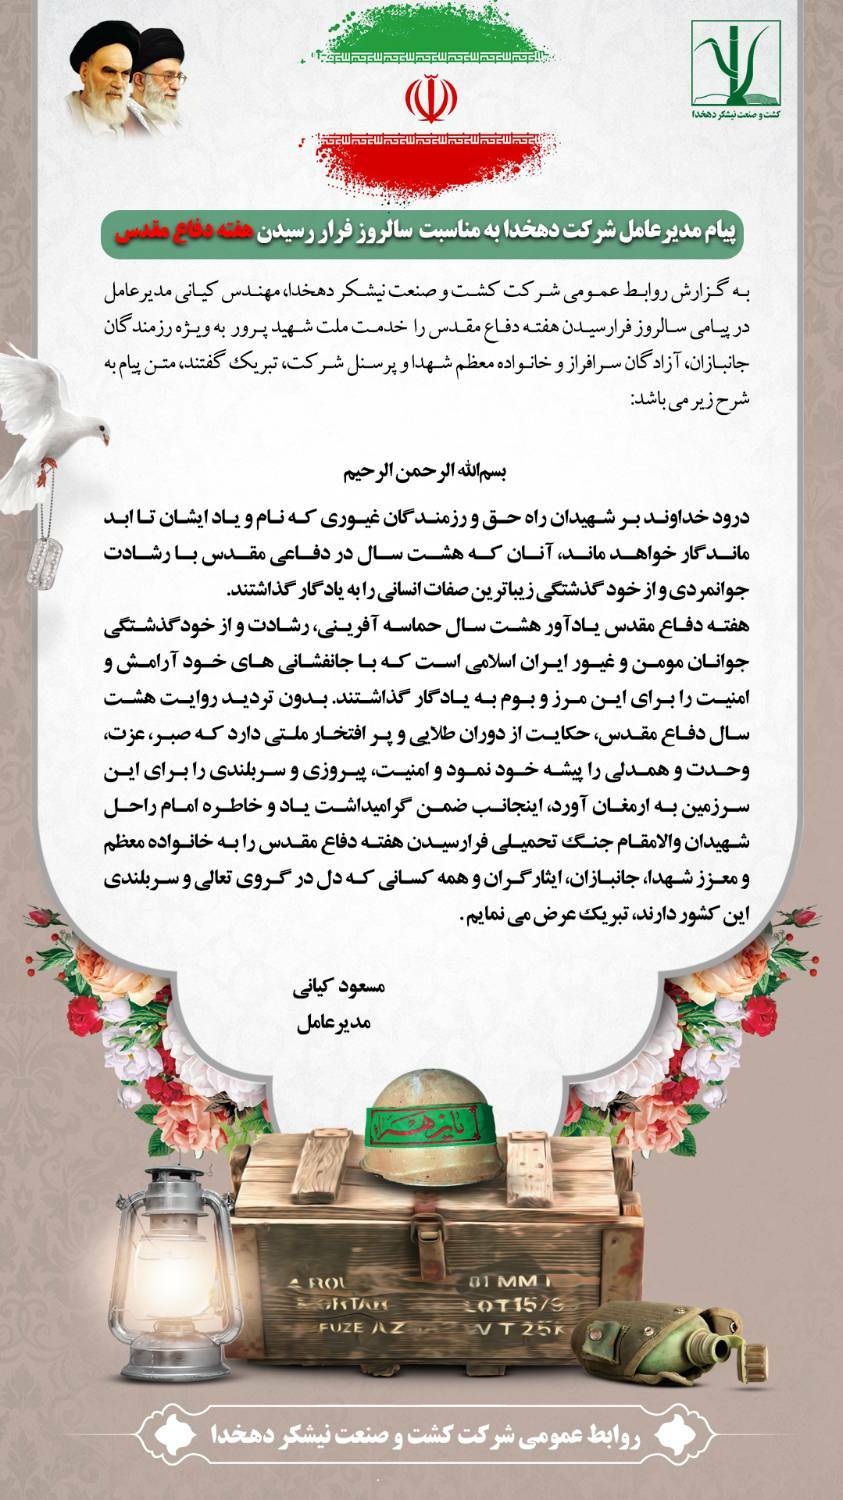 کشت و صنعت نیشکر دهخدا
پیام مدیرعامل شرکت دهخدا به مناسبت سالروز فرار رسیدن هفته دفاع مقدس
به گزارش روابط عمومی شرکت کشت و صنعت نیشکر دهخدا، مهندس کیانی مدیرعامل
در پیامی سالروز فرارسیدن هفته دفاع مقدس را خدمت ملت شهید پرور به ویژه رزمندگان
جانبازان، آزادگان سرافراز و خانواده معظم شهدا و پرسنل شرکت، تبریک گفتند، متن پیام به
شرح زیر می باشد:
بسم‌الله الرحمن الرحیم
درود خداوند بر شهیدان راه حق و رزمندگان غیوری که نام و یاد ایشان تا ابد
ماندگار خواهد ماند، آنان که هشت سال در دفاعی مقدس با رشادت
جوانمردی و از خود گذشتگی زیباترین صفات انسانی را به یادگار گذاشتند.
هفته دفاع مقدس یادآور هشت سال حماسه آفرینی، رشادت و از خودگذشتگی
جوانان مومن و غیور ایران اسلامی است که با جانفشانی های خود آرامش و
امنیت را برای این مرز و بوم به یادگار گذاشتند. بدون تردید روایت هشت
سال دفاع مقدس، حکایت از دوران طلایی و پر افتخار ملتی دارد که صبر، عزت،
وحدت و همدلی را پیشه خود نمود و امنیت، پیروزی و سربلندی را برای این
سرزمین به ارمغان آورد، اینجانب ضمن گرامیداشت یاد و خاطره امام راحل
شهیدان والامقام جنگ تحمیلی فرارسیدن هفته دفاع مقدس را به خانواده معظم
و معزز شهدا، جانبازان، ایثارگران و همه کسانی که دل در گروی تعالی و سربلندی
این کشور دارند، تبریک عرض می نمایم.
مسعود کیانی
مدیرعامل
یا زهرا
81 MM
LOT 15/9
FUZE AZ VT 25K
روابط عمومی شرکت کشت و صنعت نیشکر دهخدا